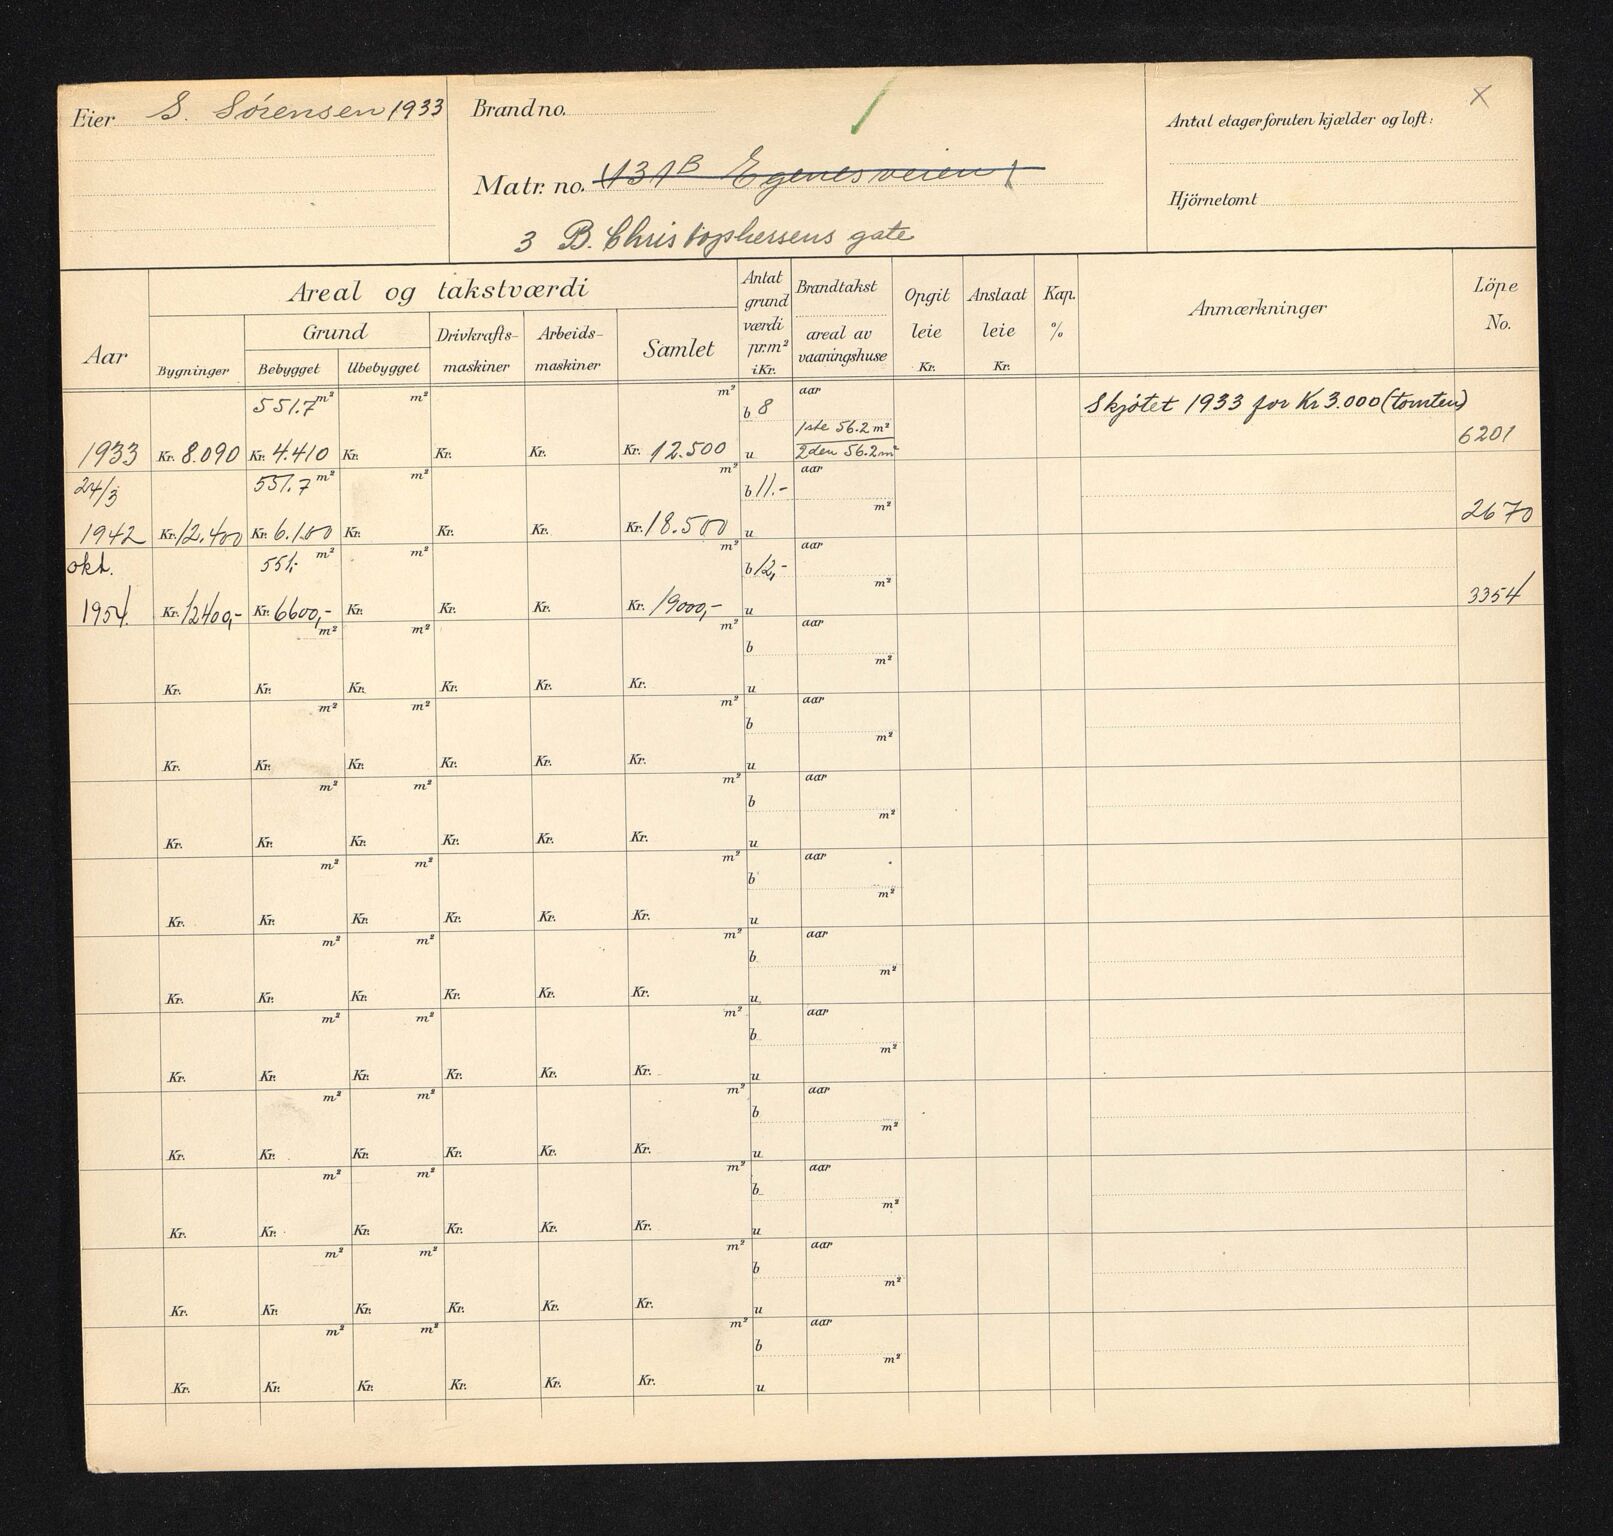 Eier S. Sörensen 1933
Brandno.
Matr. no. (131B Egenesveien)
3 B. Christophersens gate
Antal etager foruten kjælder og loft:
x
Hjörnetomt
Areal og takstværdi
Aar
Bygninger
Grund
Bebygget
Ubebygget
Drivkrafts-
maskiner
Arbeids-
maskiner
Samlet
Antat
grund
værdi
pr.m²
i Kr.
Brandtakst
areal av
vaaningshuse
Opgit
leie
Kr.
Anslaat
leie
Kr.
Kap.
%
Anmærkninger
Löpe
No.
551.7 m² m² m² b 8 aar Skjötet 1933 for Kr 3.000 (tomten)
1ste 56.2 m²
1933 Kr. 8.090 Kr. 4.410 Kr. Kr. Kr. Kr. 12.500 u 2den 56.2 m² 6201
24/3 551.7 m² m² m² b 11.- aar
m²
1942 Kr. 12.400 Kr. 6.100 Kr. Kr. Kr. Kr. 18.500 u 2670
okt. 551,- m² m² m² b 12,- aar
m²
1954. Kr. 12400,- Kr. 6600,- Kr. Kr. Kr. Kr. 19000,- u 3354
m² m² m² b aar
m²
Kr. Kr. Kr. Kr. Kr. Kr. u
m² m² m² b aar
m²
Kr. Kr. Kr. Kr. Kr. Kr. u
m² m² m² b aar
m²
Kr. Kr. Kr. Kr. Kr. Kr. u
m² m² m² b aar
m²
Kr. Kr. Kr. Kr. Kr. Kr. u
m² m² m² b aar
m²
Kr. Kr. Kr. Kr. Kr. Kr. u
m² m² m² b aar
m²
Kr. Kr. Kr. Kr. Kr. Kr. u
m² m² m² b aar
m²
Kr. Kr. Kr. Kr. Kr. Kr. u
m² m² m² b aar
m²
Kr. Kr. Kr. Kr. Kr. Kr. u
m² m² m² b aar
m²
Kr. Kr. Kr. Kr. Kr. Kr. u
m² m² m² b aar
m²
Kr. Kr. Kr. Kr. Kr. Kr. u